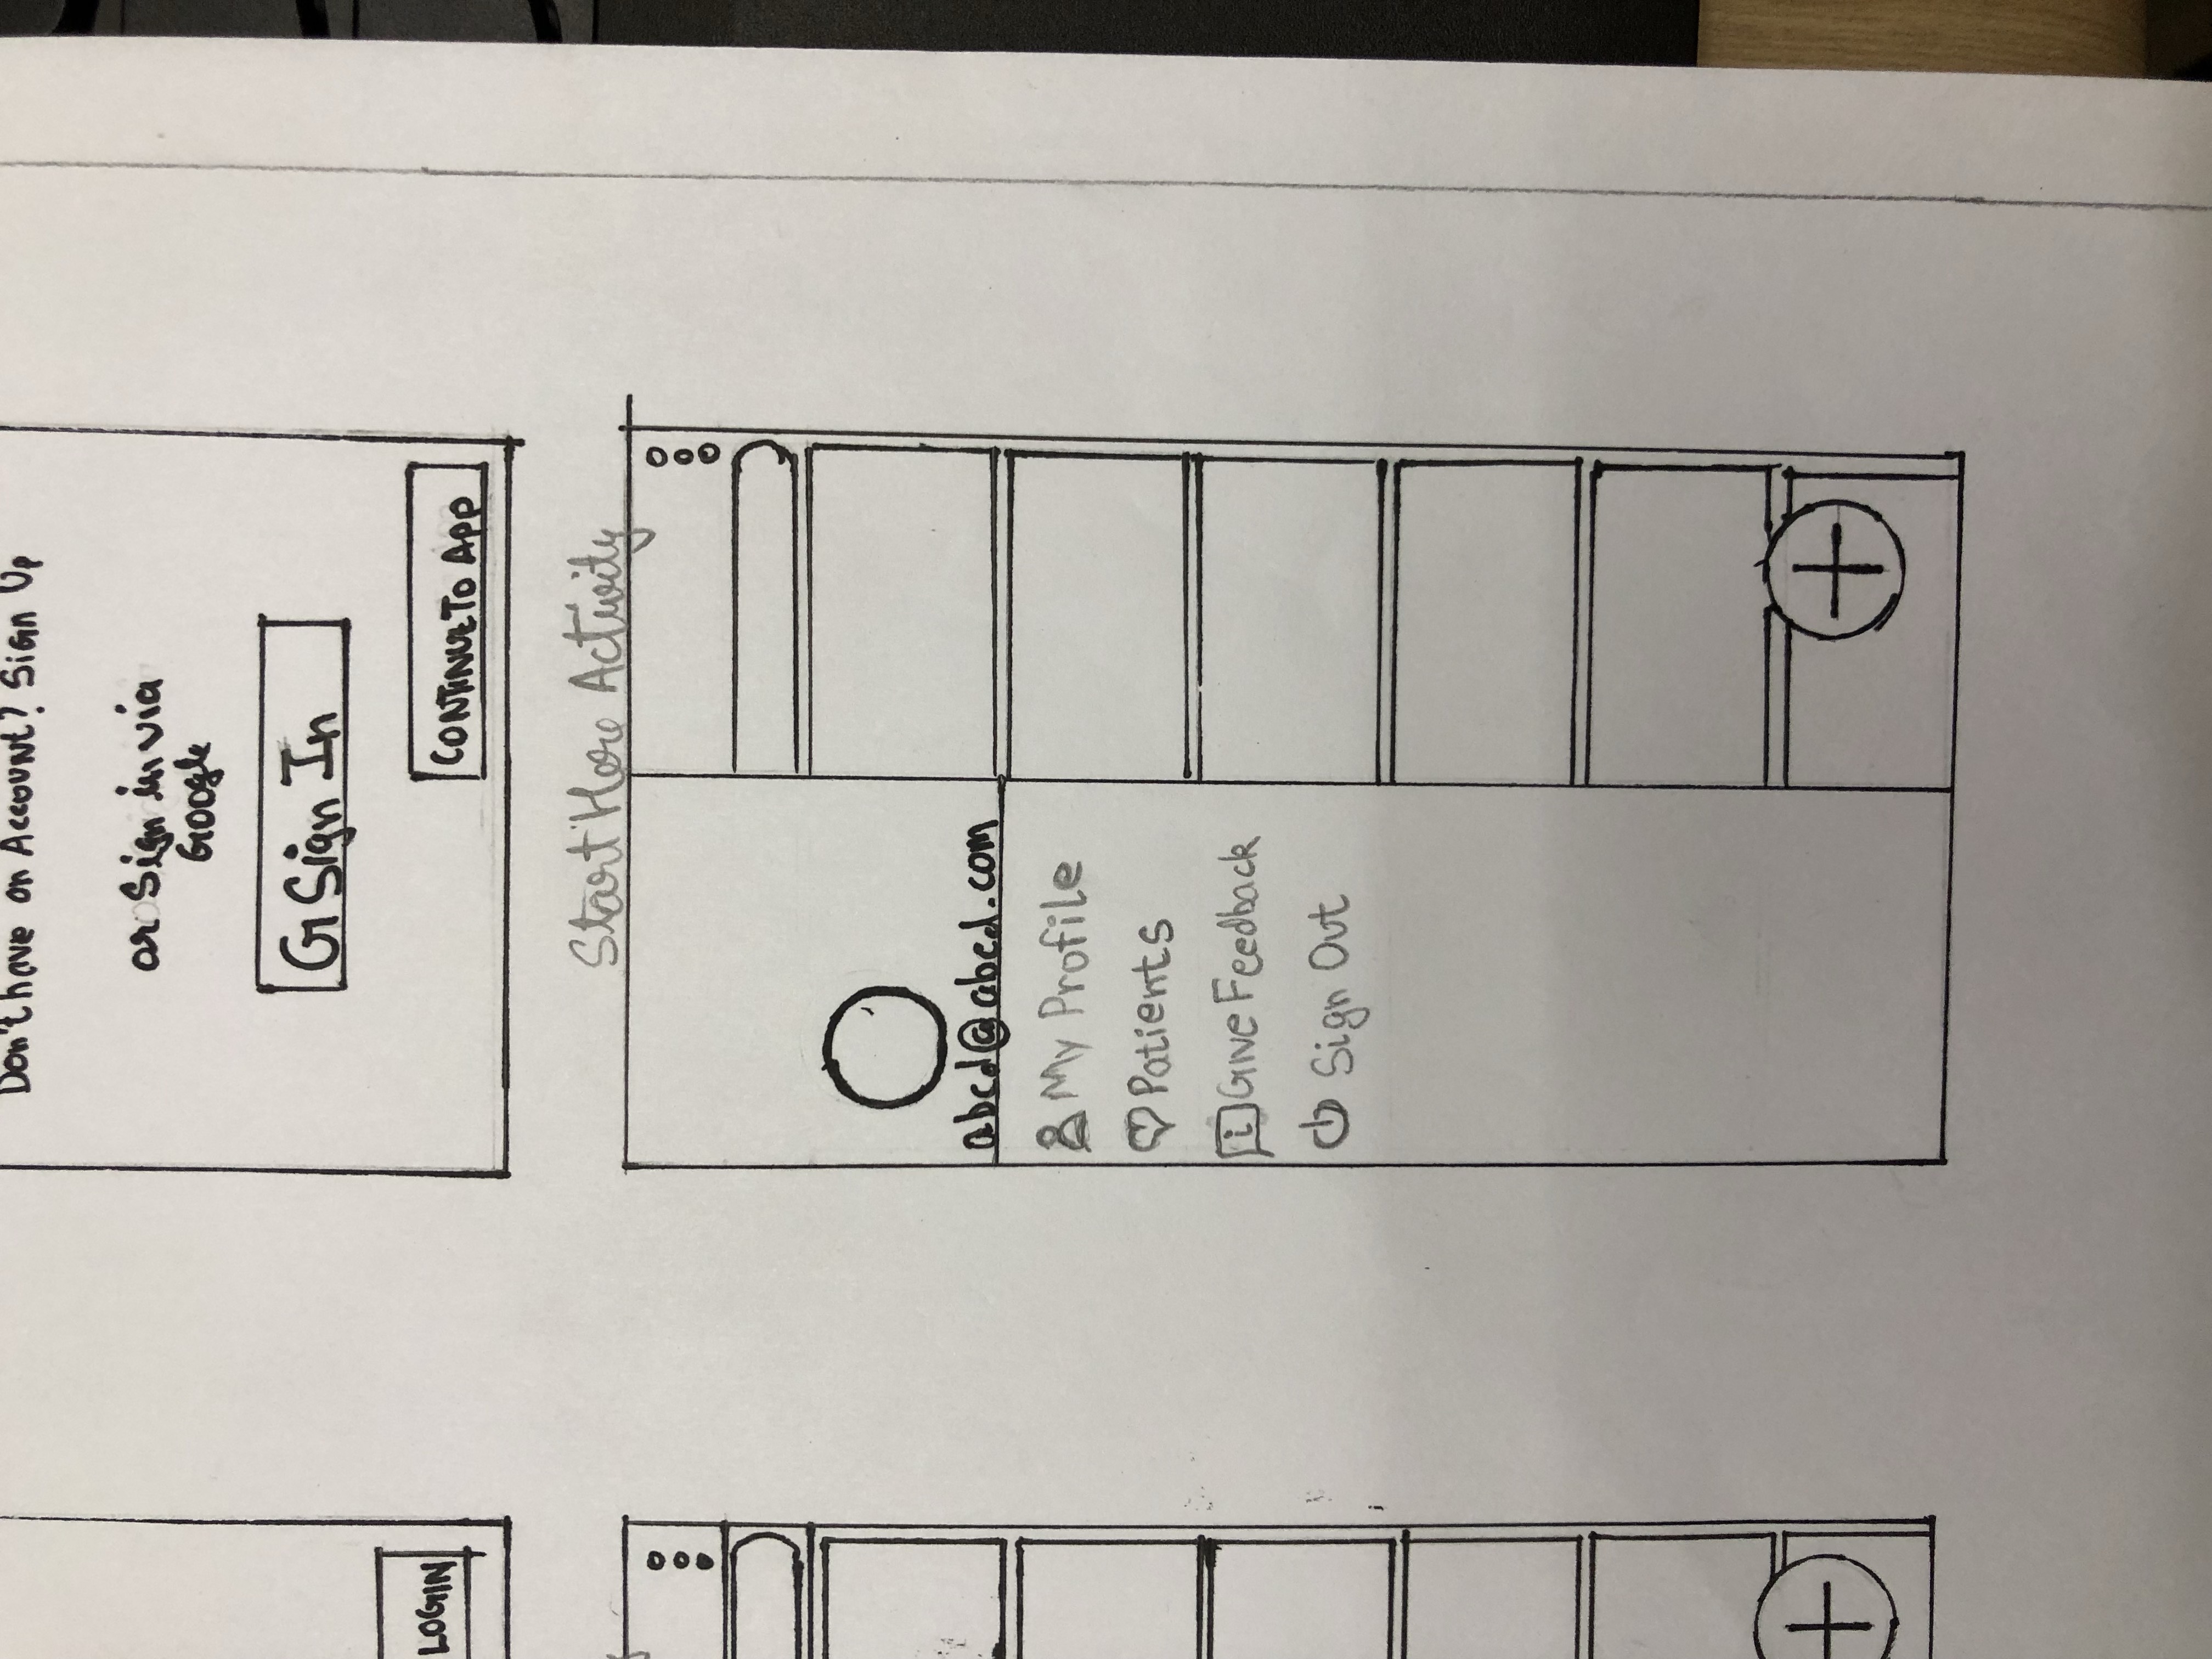 Don't have an Account? Sign Up
or Sign in via
Google
G Sign In
LOGIN
CONTINUE TO APP
Start Here Activity
abcd@abcd.com
My Profile
Patients
i Give Feedback
Sign Out